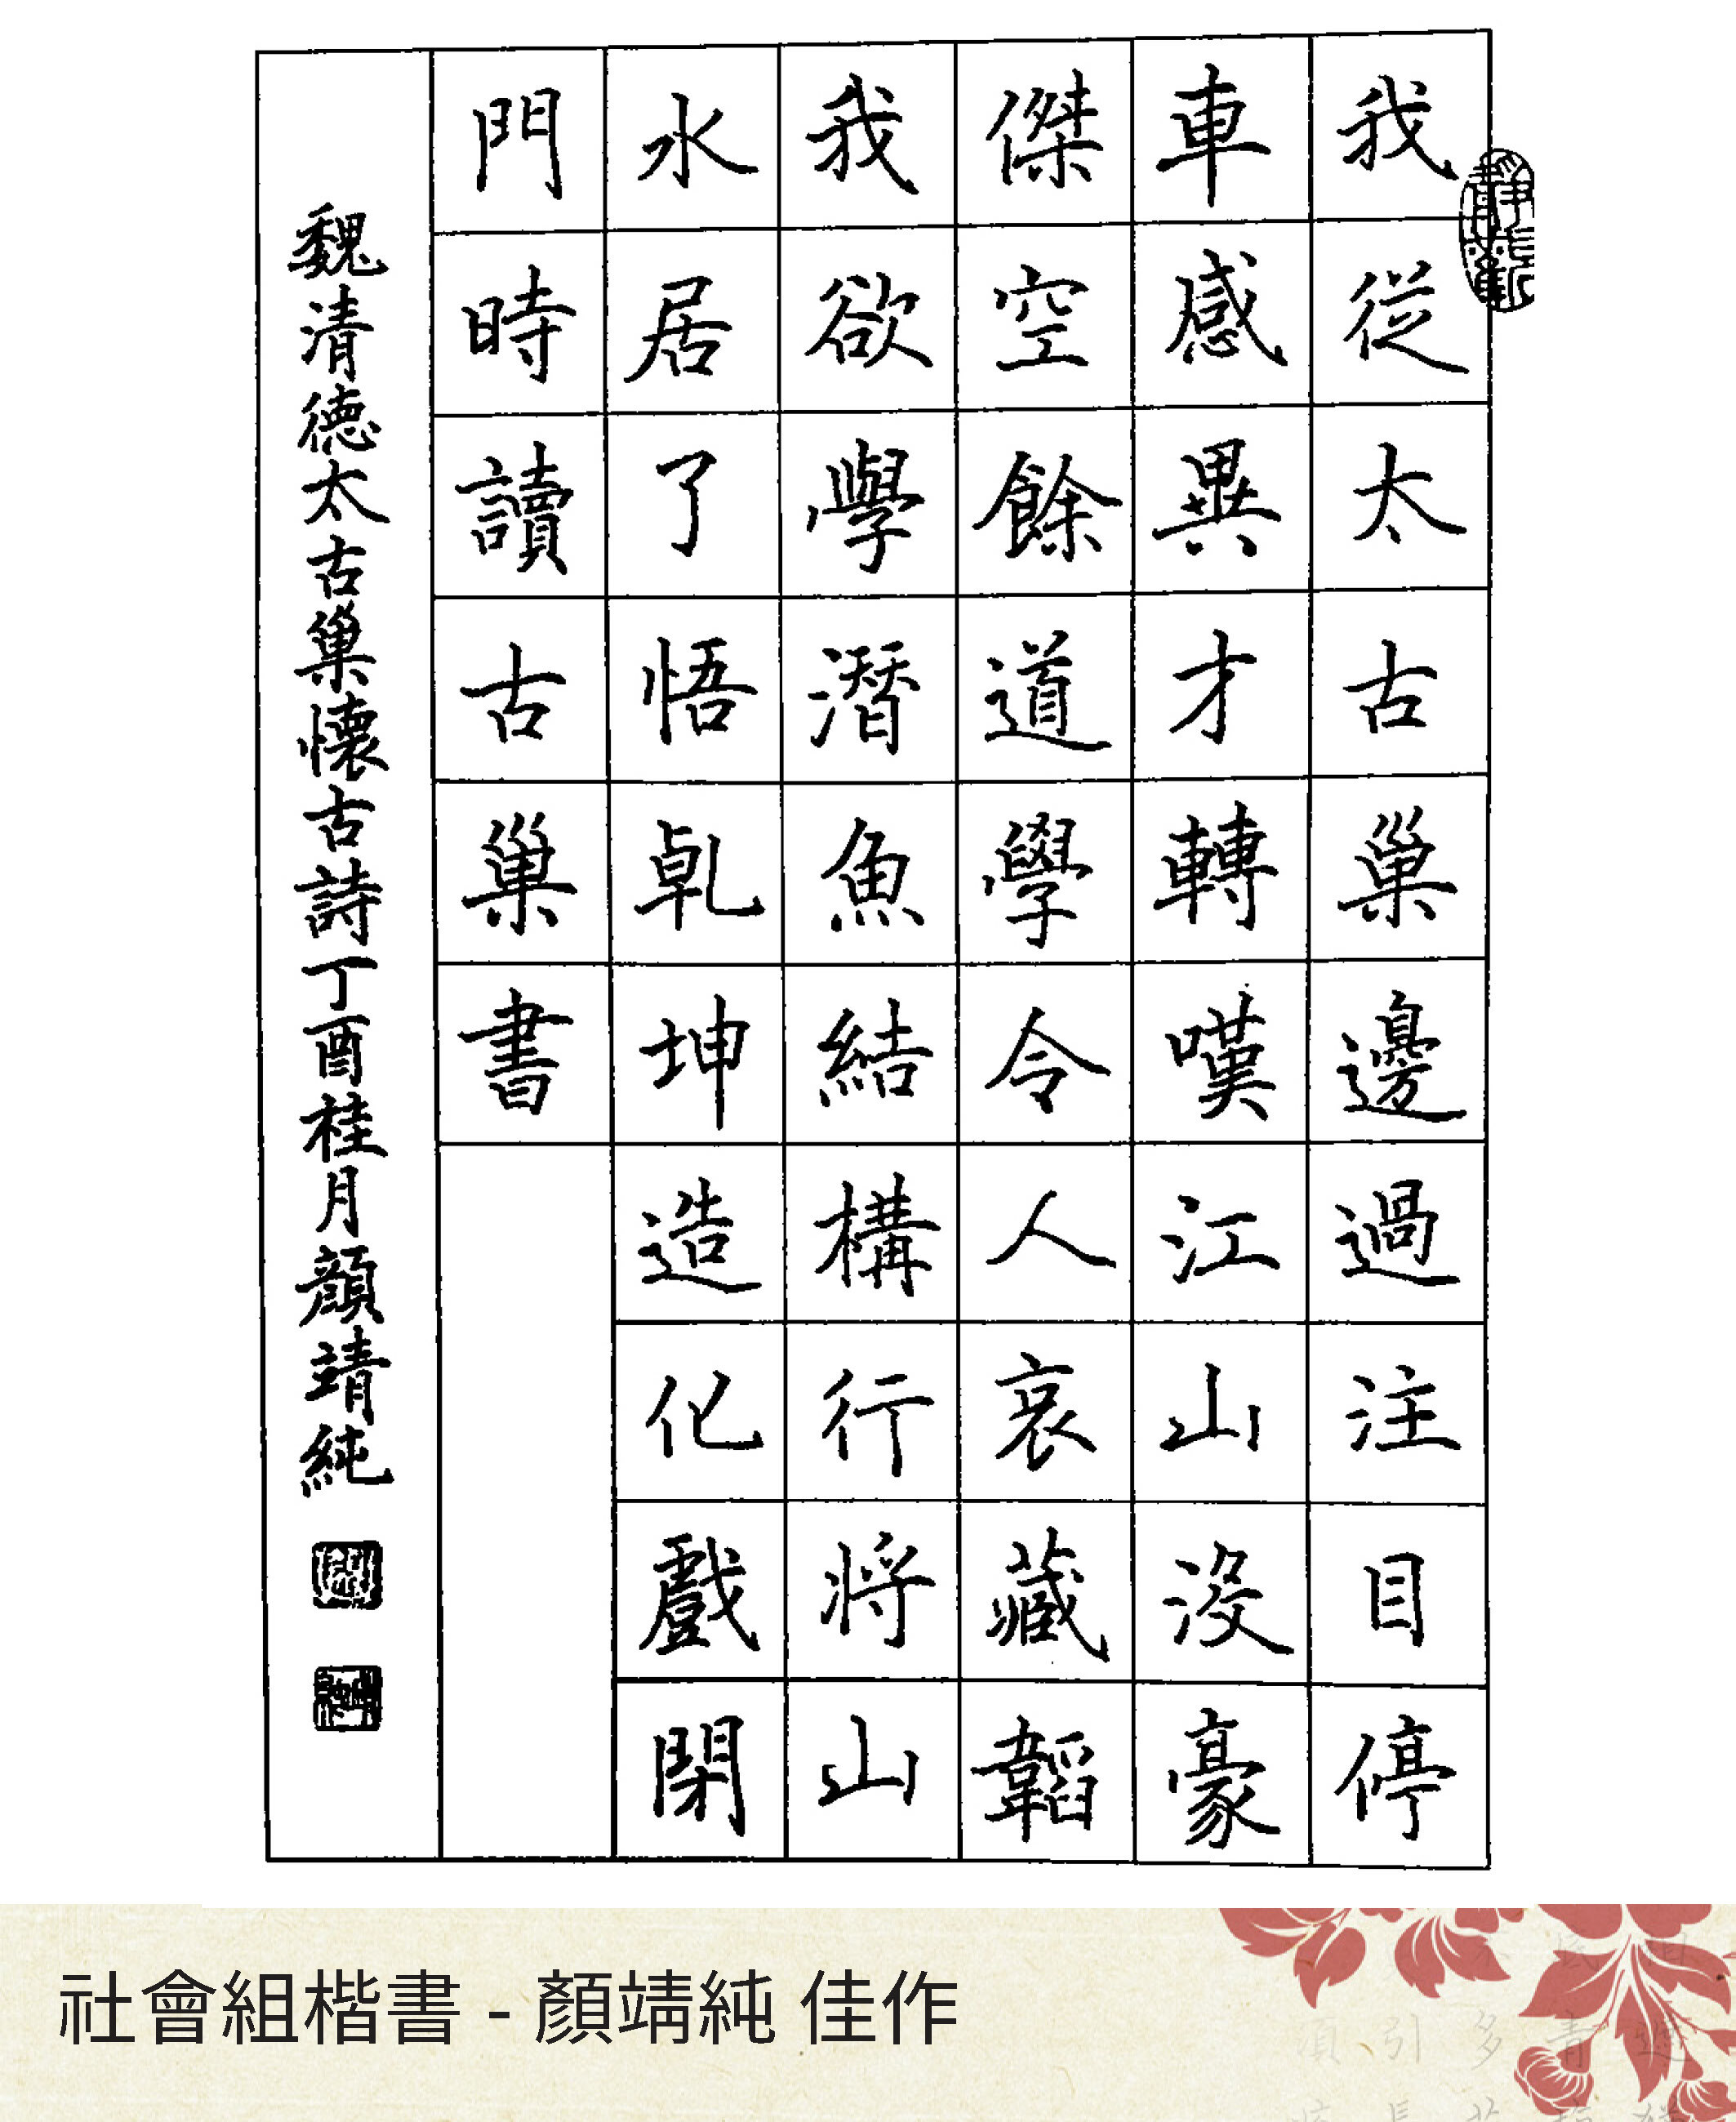 我從太古巢邊過注目停
車感異才轉嘆江山沒豪
傑空餘道學令人哀藏韜
我欲學潛魚結構行將山
水居了悟乹坤造化戲閑
門時讀古巢書
魏清德太古巢懷古詩丁酉桂月顏靖純
社會組楷書 - 顏靖純 佳作